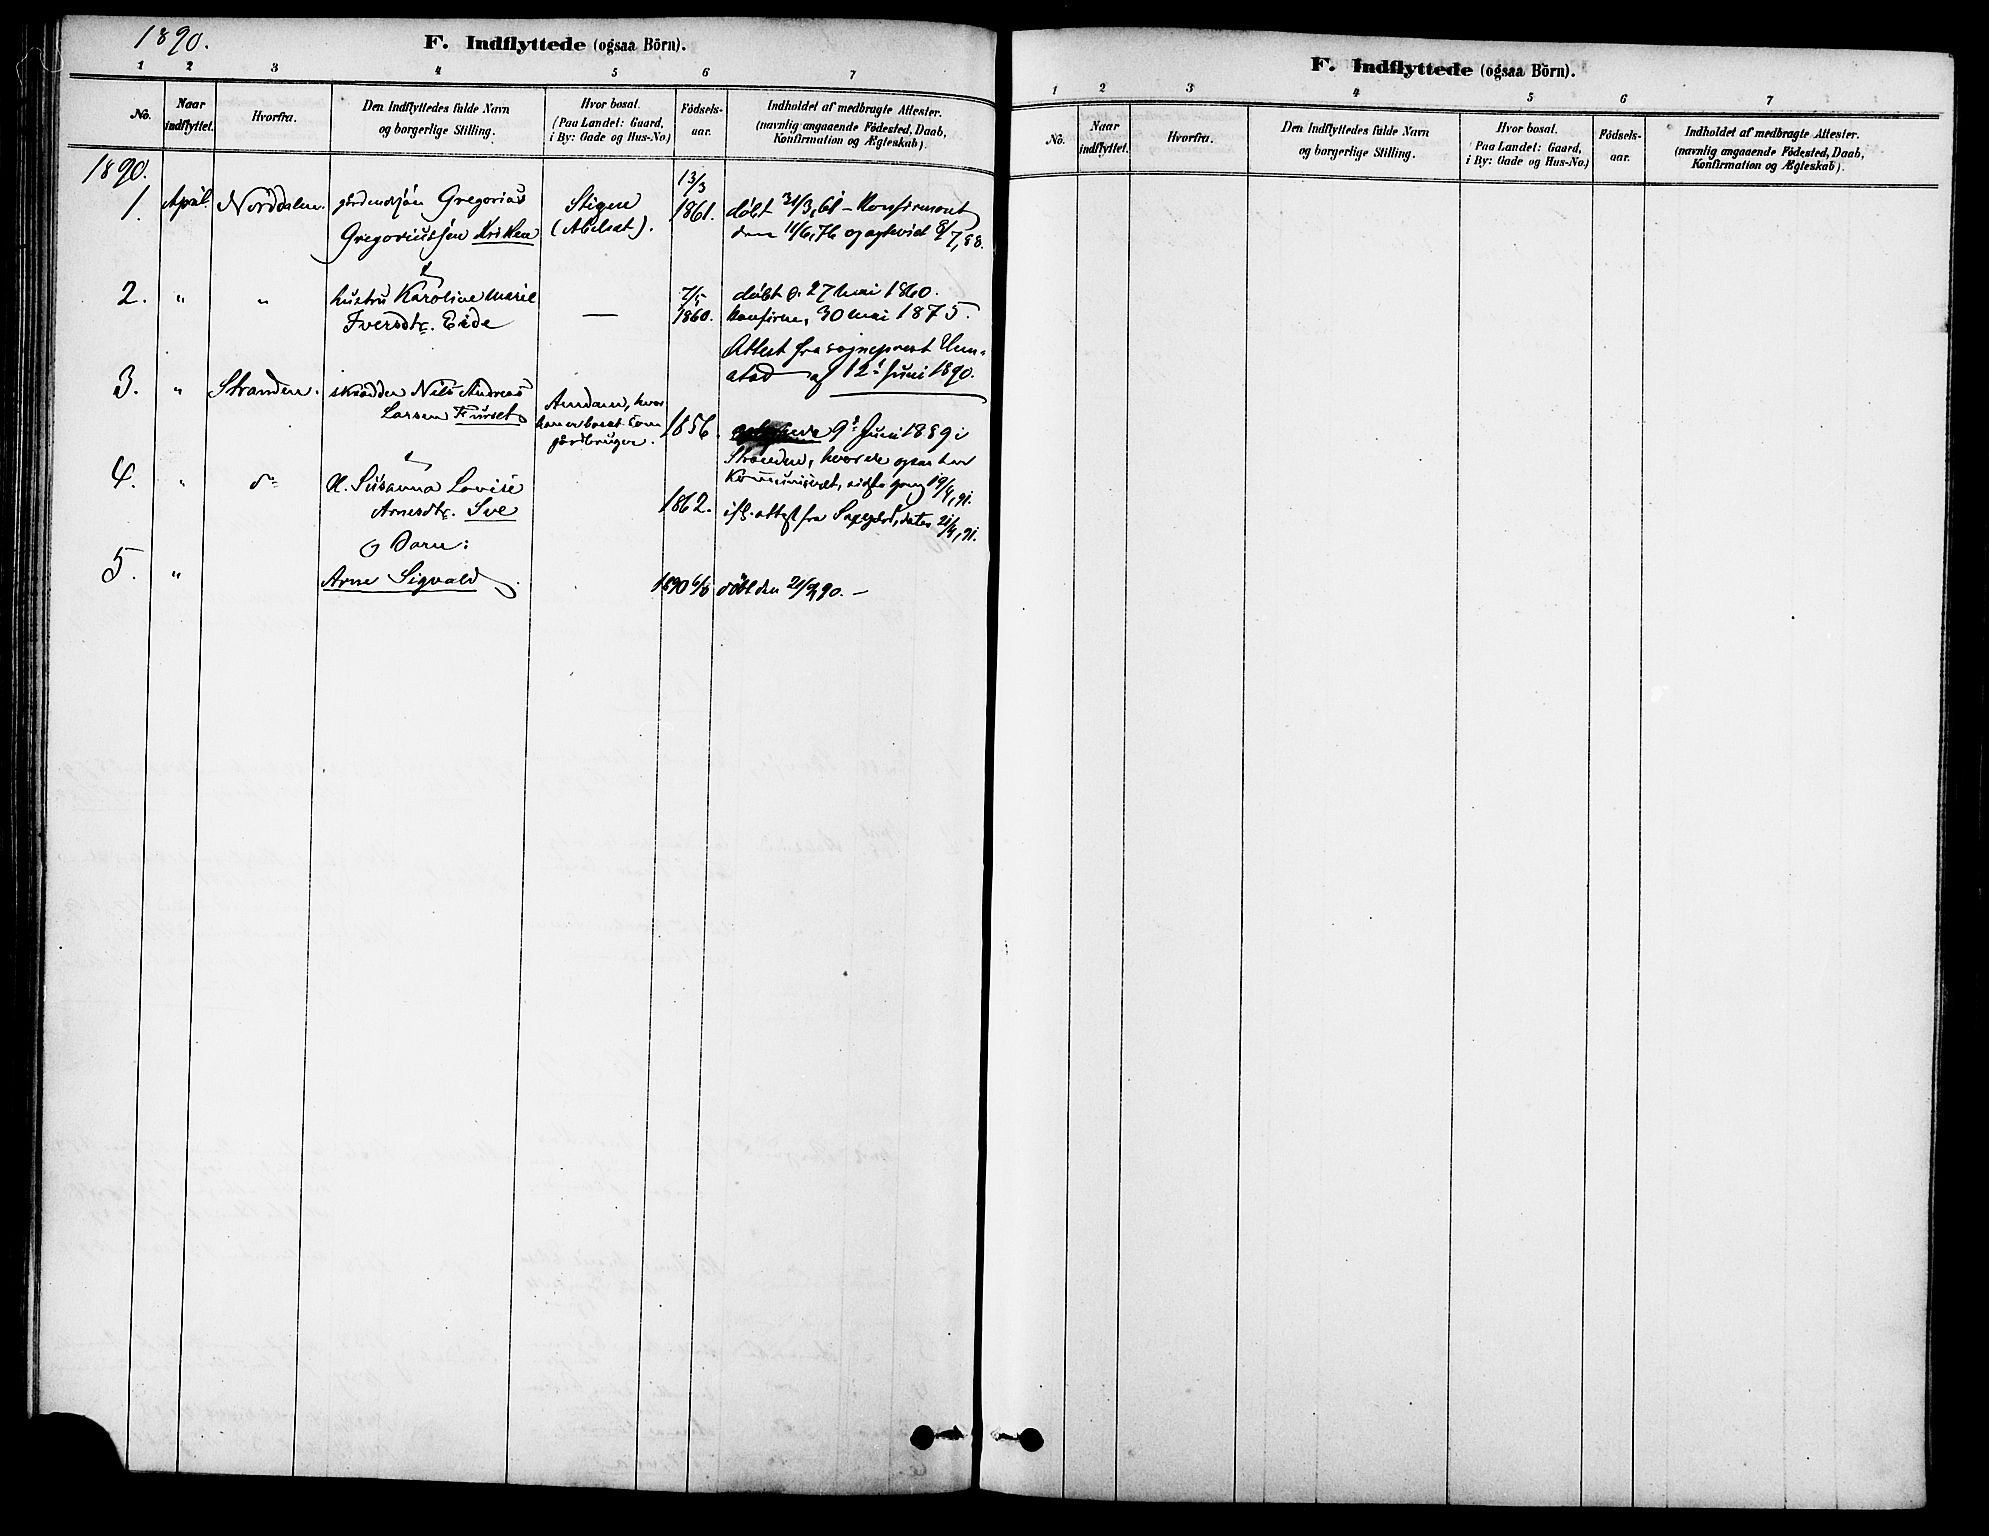 1890.
F. Indflyttede (ogsaa Börn).
1 2 3 4 5 6 7
No. Naar indflyttet. Hvorfra. Den Indflyttedes fulde Navn og borgerlige Stilling. Hvor bosat. (Paa Landet: Gaard, i By: Gade og Hus-No.) Födsels-aar. Indholdet af medbragte Attester. (navnlig angaaende Födested, Daab, Konfirmation og Ægteskab).
1890.
1. April Norddalen. Gregorius Stigen 13/3 1861. døbt 31/3,61 – Konfirmeret
Gregoriussen (Abelsæt). den 11/6,76 og ægteviet 8/7,88.
2. " " hustru Karoline Marie — 7/5 1860. døbt d. 27 Mai 1860.
Iversdtr. Eide konfirm. 30 Mai 1875.
Attest fra sogneprest
af 12t Juni 1890.
3. " Stranden. skrædder Nils Andreas hvor 1856. 9d Juni 1889 i
Larsen Furset han er bosat som
gårdbruger.
4. " do Susanna Lovise 1862. Stranden, hvor de ogsaa har
Arnesdtr. Sve kommuniceret, sidste gang 19/4,91.
ifl. attest fra dater 21/4,91.
og Barn:
5. " Arne Sigvald 1890 6/8 døbt den 21/9,90. –
F. Indflyttede (ogsaa Börn).
1 2 3 4 5 6 7
No. Naar indflyttet. Hvorfra. Den Indflyttedes fulde Navn og borgerlige Stilling. Hvor bosat. (Paa Landet: Gaard, i By: Gade og Hus-No.) Födsels-aar. Indholdet af medbragte Attester. (navnlig angaaende Födested, Daab, Konfirmation og Ægteskab).